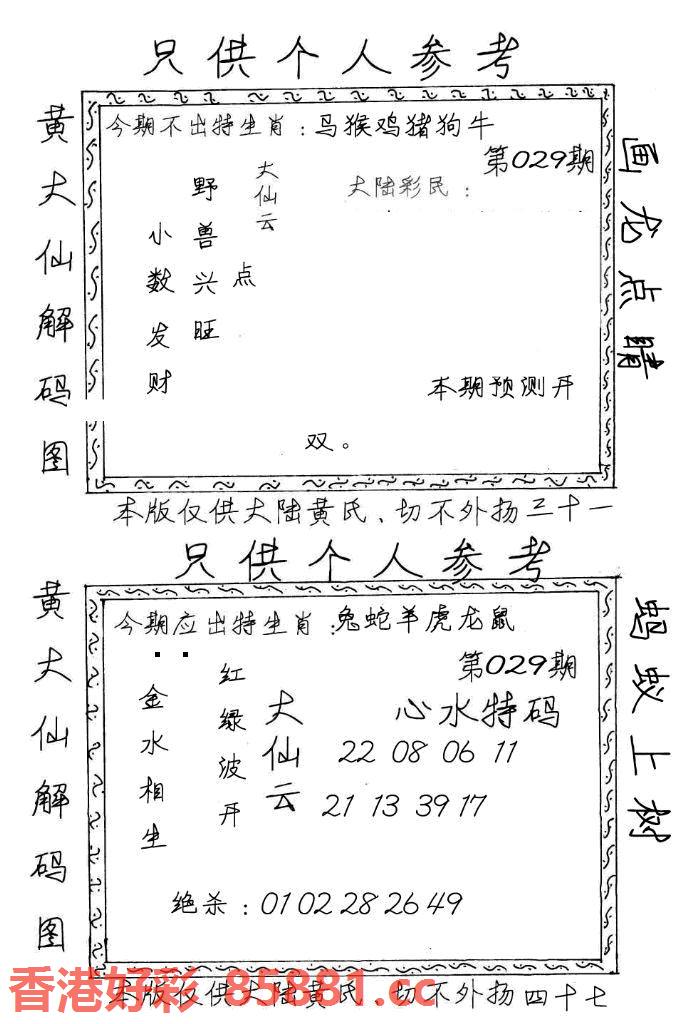 只供个人参考
黄大仙解码图
今期不出特生肖：马猴鸡猪狗牛
第029期
大仙云
大陆彩民：
野兽兴旺
点
小数发财
本期预测开
双。
画龙点睛
本版仅供大陆黄氏、切不外扬三十一
只供个人参考
黄大仙解码图
今期应出特生肖：兔蛇羊虎龙鼠
第029期
金水相生
红绿波开
大仙云
心水特码
22 08 06 11
21 13 39 17
绝杀：01 02 28 26 49
蚂蚁上树
本版仅供大陆黄氏、切不外扬四十七
香港好彩 85881.cc